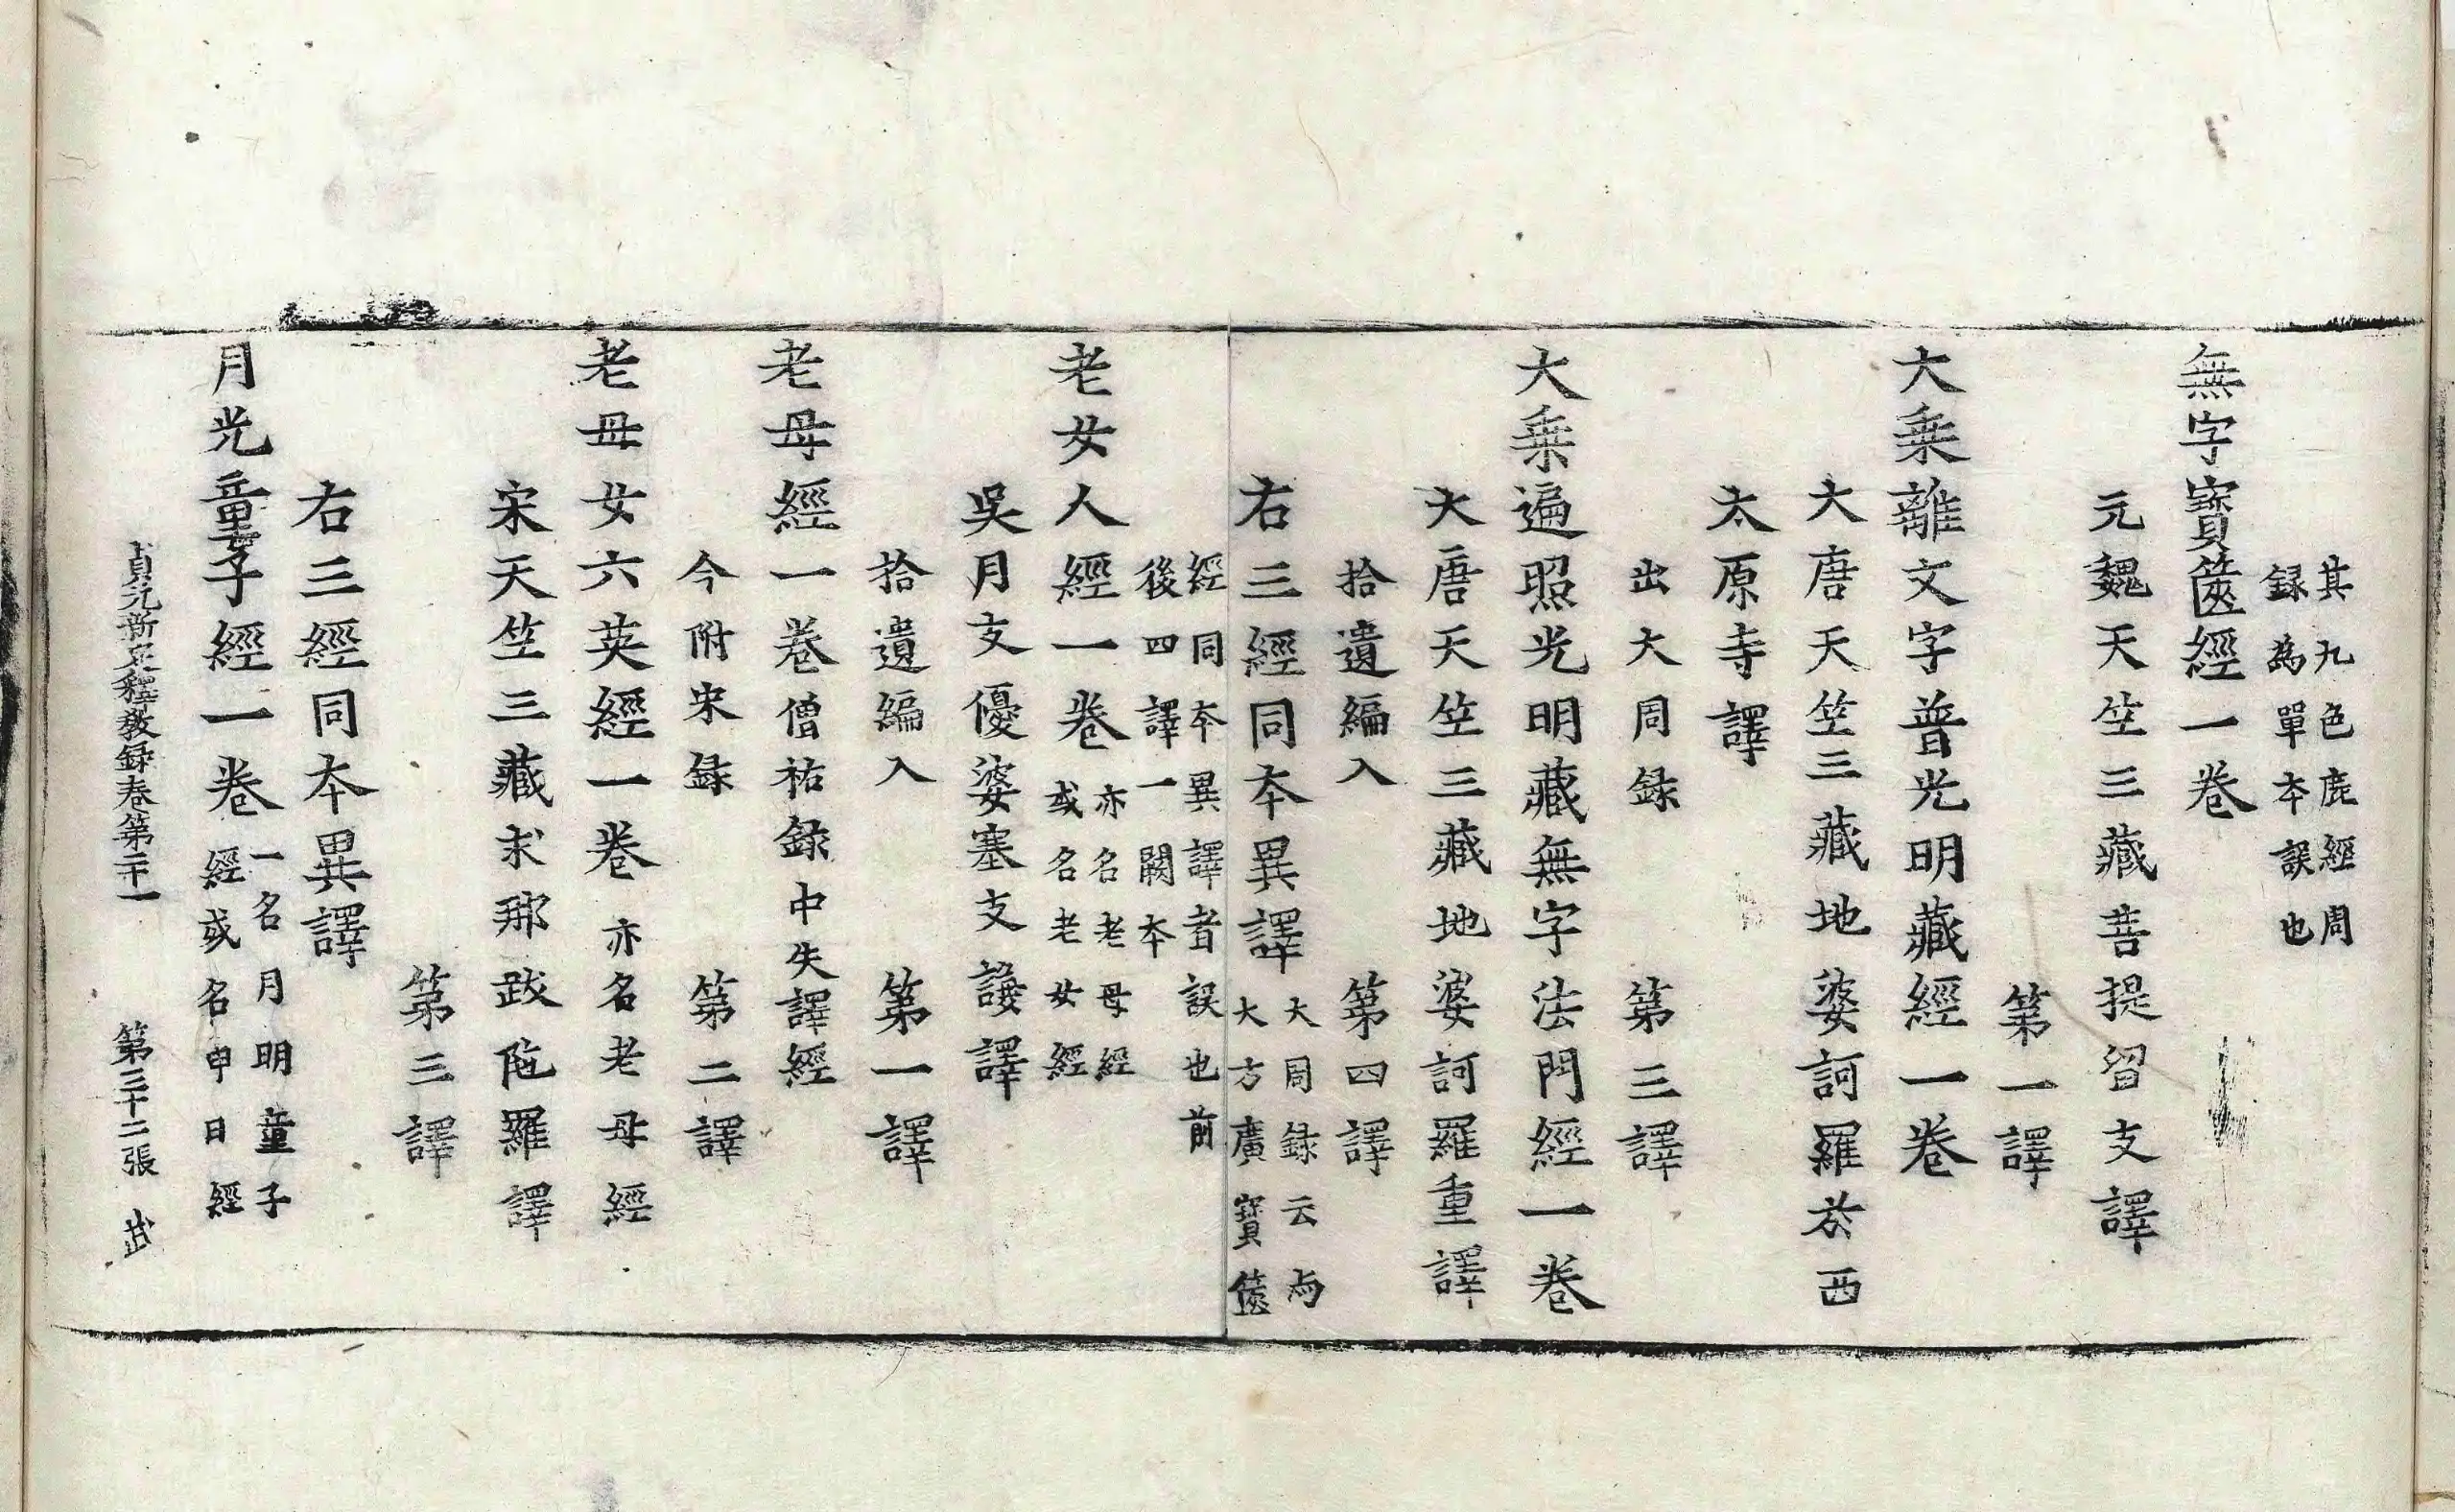 其九色鹿經周
録為單本誤也
無字寶篋經一卷
元魏天竺三藏菩提留支譯
第一譯
大乘離文字普光明藏經一卷
大唐天竺三藏地婆訶羅於西
太原寺譯
出大周録　第三譯
大乘遍照光明藏無字法門經一卷
大唐天竺三藏地婆訶羅重譯
拾遺編入　第四譯
右三經同本異譯大周録云与
大方廣寶篋
經同本異譯者誤也前
後四譯一闕本
老女人經一卷亦名老母經
或名老女經
吳月支優婆塞支謙譯
拾遺編入　第一譯
老母經一卷僧祐錄中失譯經
今附宋録　第二譯
老母女六英經一卷亦名老母經
宋天竺三藏求那跋陁羅譯
第三譯
右三經同本異譯
月光童子經一卷一名月明童子
經或名申日經
貞元新定釋教録卷第二十一　第三十二張